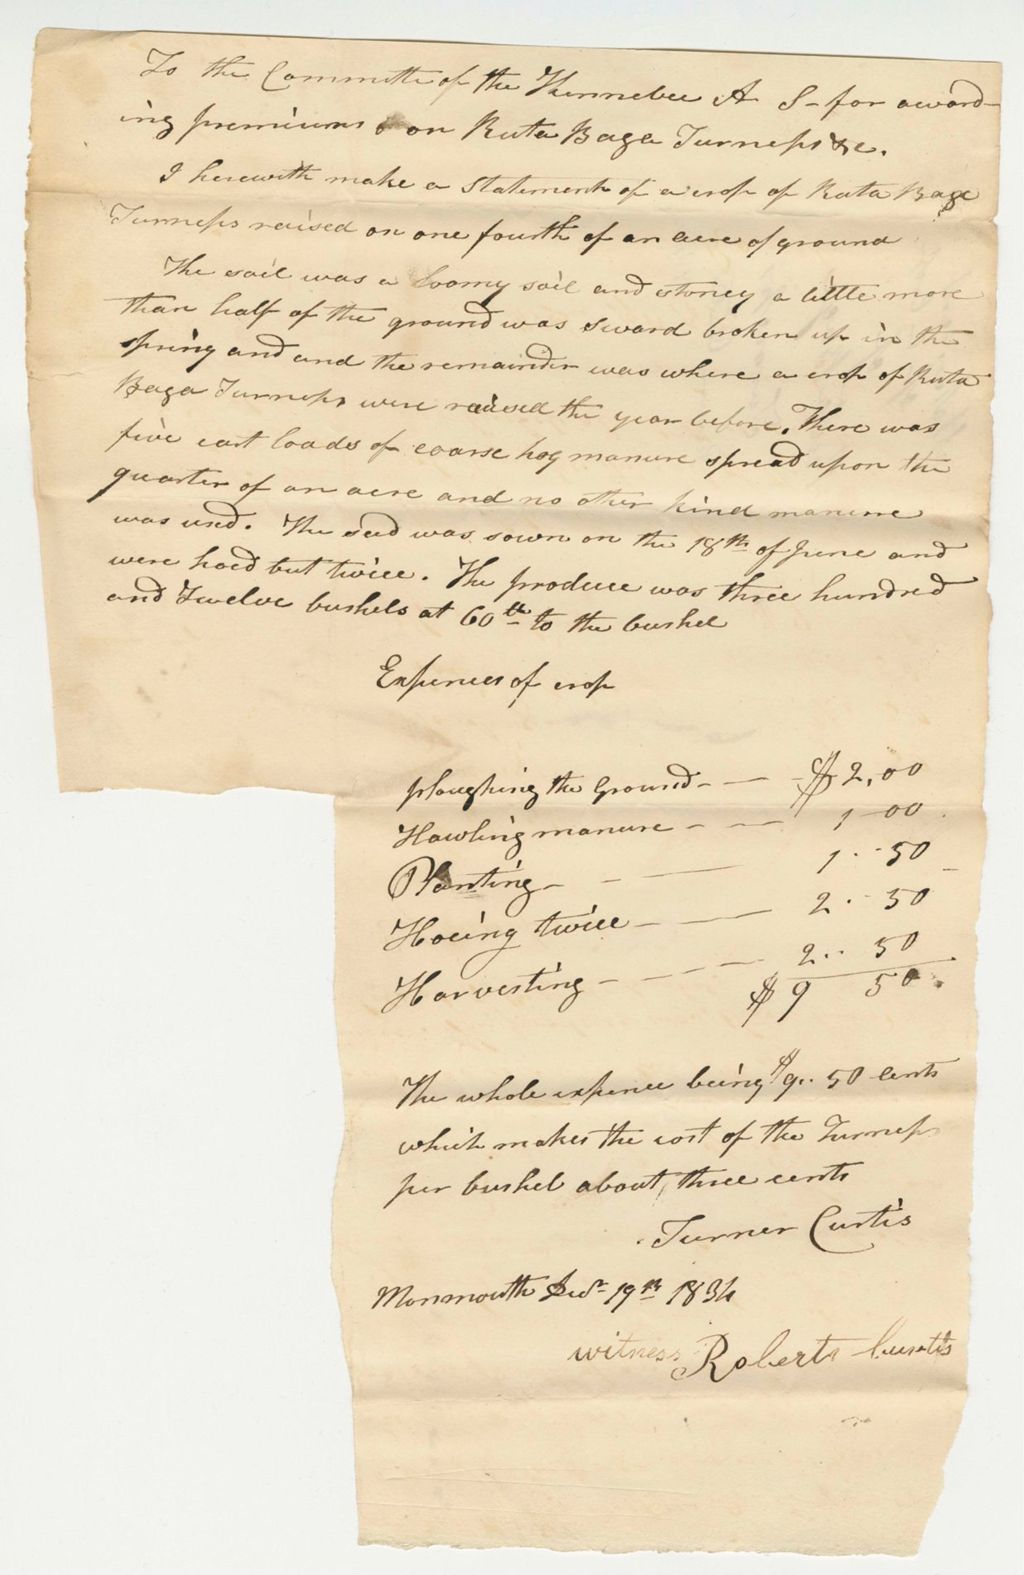 To the Committe of the Kennebec A S- for award-
ing premiums on Ruta Baga Turneps &c.
I herewith make a Statement of a crop of Ruta Baga
Turneps raised on one fourth of an acre of ground
The soil was a loomy soil and stoney a little more
than half of the ground was sward broken up in the
spring and and the remainder was where a crop of Ruta
Baga Turneps were raised the year before. There was
five cart loads of coarse hog manure spread upon the
quarter of an acre and no other kind manure
was used. The seed was sown on the 18th of June and
were hoed but twice. The produce was three hundred
and Twelve bushels at 60 lb to the bushel
Expences of crop
ploughing the Ground - — - $2,00
Hawling manure - — — 1 - 00
Planting - - — 1 . - 50
Hoeing twice — — 2 . - 50
Harvesting - - — — 2 .. 50
$ 9 50
The whole expence being $9.. 50 cents
which makes the cost of the Turneps
per bushel about three cents
Turner Curtis
Monmouth 19th 1834
witness Roberts Curtis